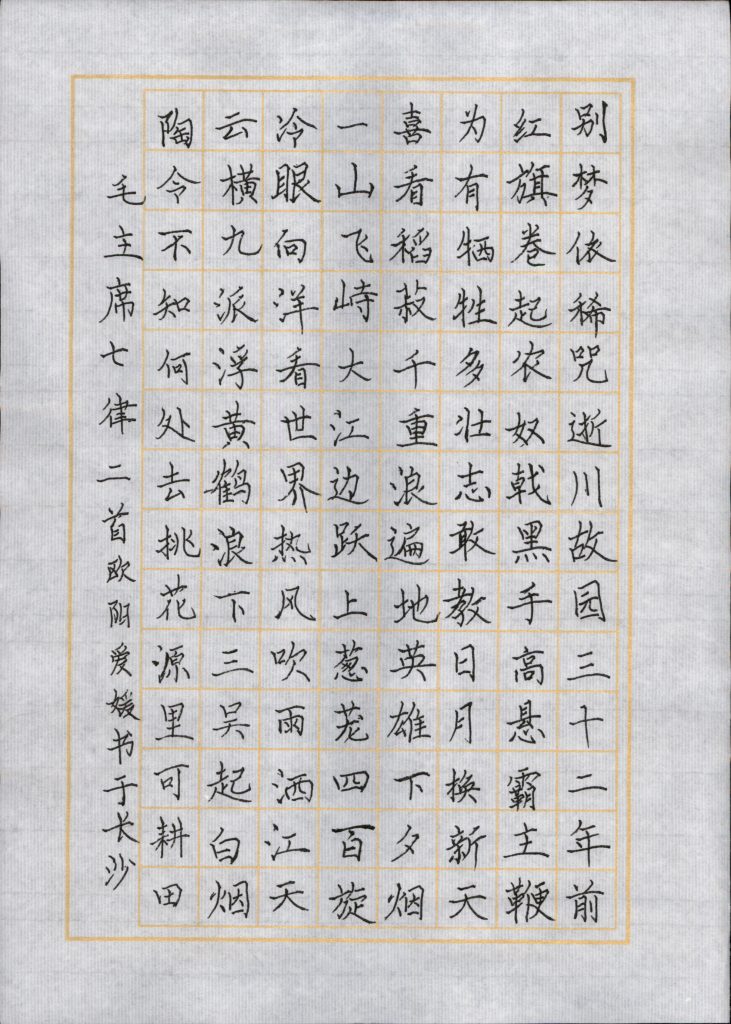 别梦依稀咒逝川故园三十二年前
红旗卷起农奴戟黑手高悬霸主鞭
为有牺牲多壮志敢教日月换新天
喜看稻菽千重浪遍地英雄下夕烟
一山飞峙大江边跃上葱茏四百旋
冷眼向洋看世界热风吹雨洒江天
云横九派浮黄鹤浪下三吴起白烟
陶令不知何处去挑花源里可耕田
毛主席七律二首欧阳爱媛书于长沙